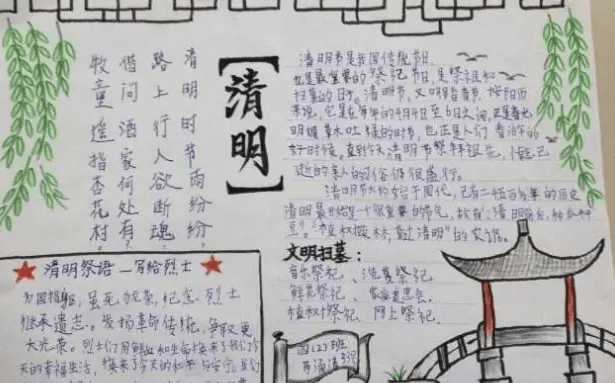 清明时节雨纷纷,
路上行人欲断魂。
借问酒家何处有,
牧童遥指杏花村。
【清明】
清明节是我国传统节日,
也是最重要的祭祀节日,是祭祖和
扫墓的日子。清明节,又叫踏青节,按阳历
来说,它是在每年的4月4日至6日之间,正是春光
明媚草木吐绿的时节,也正是人们春游的
好时候,直到今天清明节祭拜祖先,悼念已
逝的亲人的习俗仍很盛行。
清明节大约始于周代,已有二千五百多年的历史
清明最开始是一个很重要的节气,故有:清明前后,种瓜种
豆。"植树造林,莫过清明"的农谚。
文明扫墓:
音乐祭祀、洗墓祭祀
鲜花祭祀、家庭追思会
植树祭祀、网上祭祀
清明祭语—写给烈士
为国捐躯,虽死犹荣,纪念烈士
继承遗志。发扬革命传统,争取更
大光荣。烈士们用鲜血和生命换来了我们今
天的幸福生活,换来了今天的和平与安宁。我们